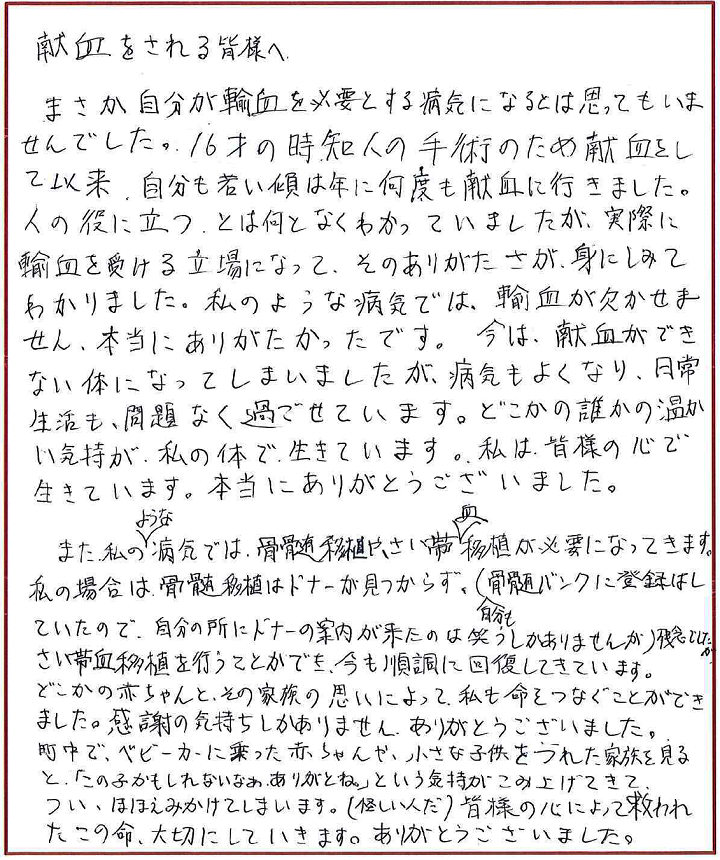 献血をされる皆様へ
まさか自分が輸血を必要とする病気になるとは思ってもいま
せんでした。16才の時知人の手術のため献血をし
て以来、自分も若い頃は年に何度も献血に行きました。
人の役に立つ、とは何となくわかっていましたが、実際に
輸血を受ける立場になって、そのありがたさが、身にしみて
わかりました。私のような病気では、輸血が欠かせま
せん、本当にありがたかったです。 今は、献血ができ
ない体になってしまいましたが、病気もよくなり、日常
生活も、問題なく過ごせています。どこかの誰かの温か
い気持が、私の体で、生きています。私は、皆様の心で
生きています。本当にありがとうございました。
また、私のような病気では、骨髄移植や、さい帯血移植が必要になってきます。
私の場合は、骨髄移植はドナーが見つからず、(骨髄バンクに登録はし
ていたので、自分の所に自分もドナーの案内が来たのは笑うしかありませんが)残念でしたが
さい帯血移植を行うことができ、今も順調に回復してきています。
どこかの赤ちゃんと、その家族の思いによって、私も命をつなぐことができ
ました。感謝の気持ちしかありません、ありがとうございました。
町中で、ベビーカーに乗った赤ちゃんや、小さな子供をつれた家族を見る
と、「この子かもしれないなぁ、ありがとね。」という気持がこみ上げてきて、
つい、ほほえみかけてしまいます。(怪しい人だ)皆様の心によって救われ
たこの命、大切にしていきます。ありがとうございました。